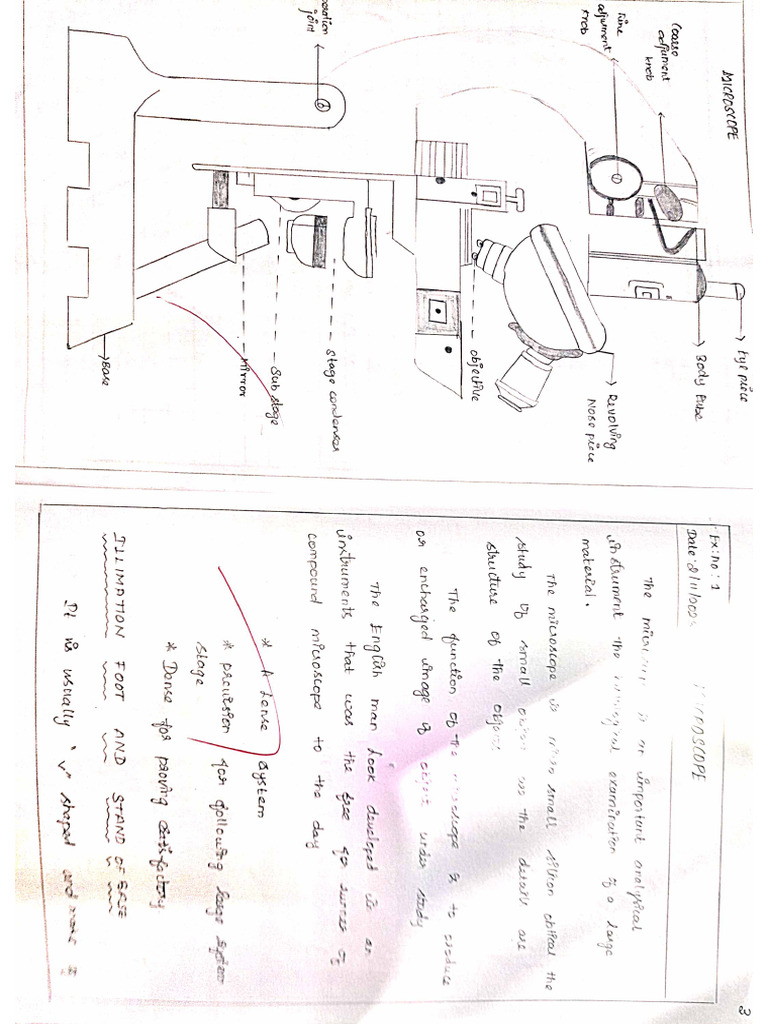 MICROSCOPE
Coarse
adjument
knob
Fine
adjument
knob
joint
Eye piece
Body tube
Revolving
Nose piece
Objective
Stage condenser
Sub stage
Mirror
Base
2
Ex: no : 1
Date:
The is an important analytical
instrument the examination of a large
material.
The microscope is small optical the
study of small as the details are
structure of the object
The function of the is to produce
or encharged image of object under study
The English man developed is an
instruments that was the for of
compound microscope to the day
* A lense system
* precision for following large system
stage
* Dense for proving
ILLIMATION FOOT AND STAND OF BASE
It is usually "v" shaped and